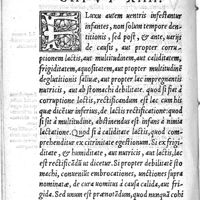 CAPVT XIII.
FLuxu autem ventris infestantur
infantes, non solùm tempore den-
titionis, sed post, & ante, varijs
de causis, aut propter corru-
ptionem lactis, aut multitudinem, aut caliditatem,
frigiditatem, egnositatem, aut propter multitudinē
deglutitionis saliuæ, aut propter lac impregnantis
nutricis, aut ab stomachi debilitate. quod si fiat à
corruptione lactis, rectificandum est lac. cum his
quæ dicetur inferiùs, de lactis rectificatione: quod
si sit à multitudine, abstinendus est infans à nimia
lactatione. Quod si à caliditate lactis, quod com-
prehenditur ex citrinitate egestionum. Si ex frigi-
ditate, & humiditate, aut nutricis, aut lactis, lac
est rectificādū ut dicetur. Si propter debilitatē sto
machi, conuenit embrocationes, unctiones supra
nominatæ, de cura vomitus à causa calida, aut fri-
gida. Sed vnum est prænotādum, quod nunquā cōd